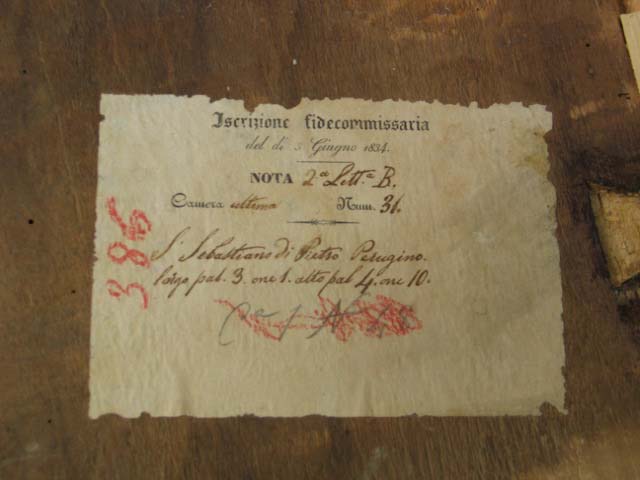 Iscrizione fidecommissaria
del dì 5 Giugno 1834.
NOTA 2ª Lett.ª B.
Camera ultima Num. 31.
S. Sebastiano di Pietro Perugino.
largo pal. 3. onc 1. alto pal 4. onc 10.
386